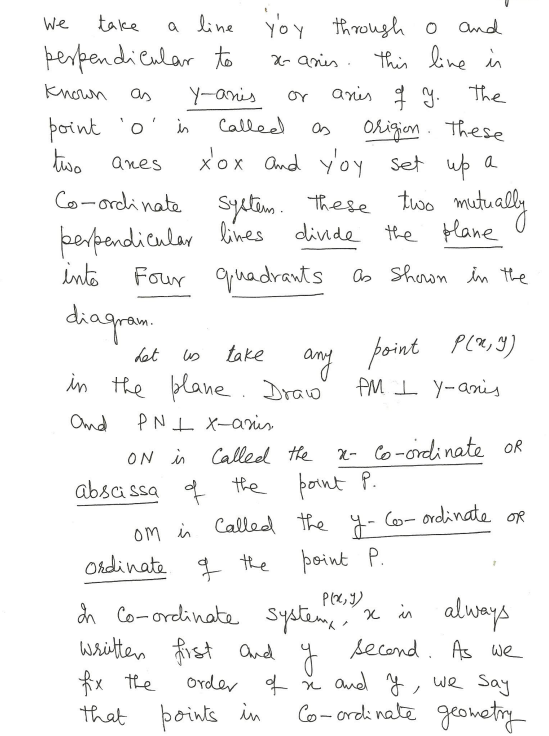 We take a line y'oy through o and
perpendicular to x-axis. This line is
known as y-axis or axis of y. The
point 'o' is called as origion. These
two axes x'ox and y'oy set up a
Co-ordinate system. These two mutually
perpendicular lines divide the plane
into Four quadrants as shown in the
diagram.
Let us take any point P(x,y)
in the plane. Draw PM ⊥ Y-axis
and PN ⊥ X-axis.
ON is called the x- co-ordinate OR
abscissa of the point P.
OM is called the y- co-ordinate OR
ordinate of the point P.
In Co-ordinate system, P(x,y), x is always
written first and y second. As we
fix the order of x and y, we say
that points in co-ordinate geometry